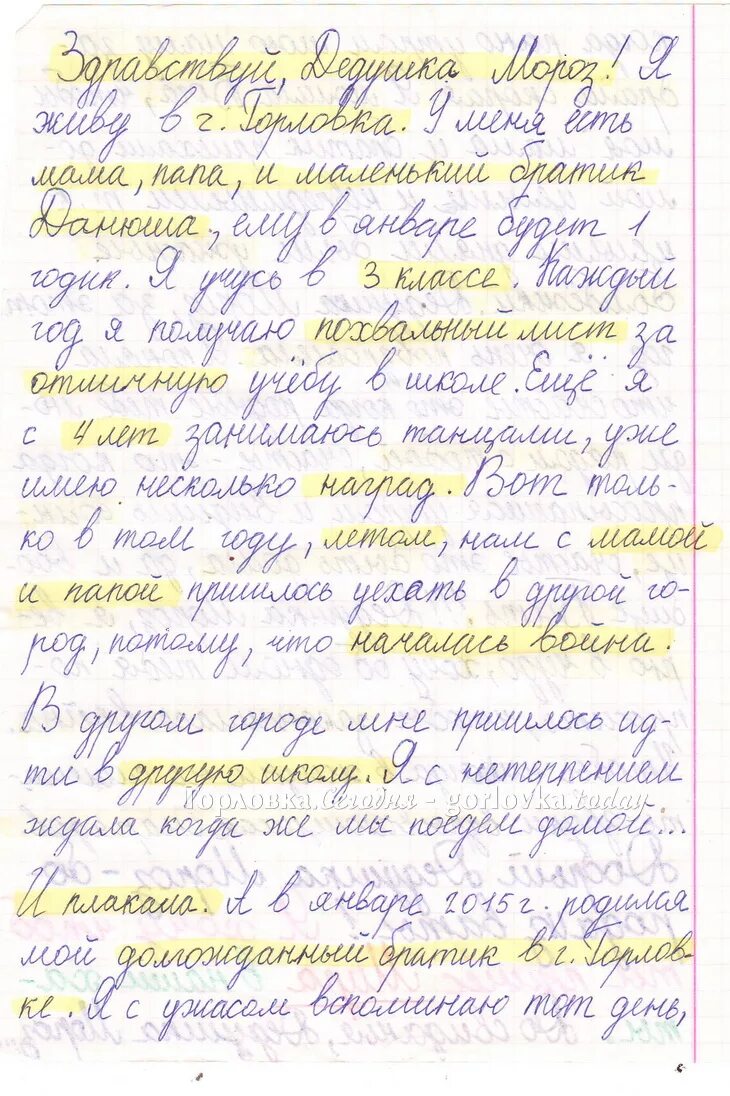 Здравствуй, Дедушка Мороз! Я
живу в г. Горловка. У меня есть
мама, папа, и маленький братик
Данюша, ему в январе будет 1
годик. Я учусь в 3 классе. Каждый
год я получаю похвальный лист за
отличную учёбу в школе. Ещё я
с 4 лет занимаюсь танцами, уже
имею несколько наград. Вот толь-
ко в том году, летом, нам с мамой
и папой пришлось уехать в другой го-
род, потому, что началась война.
В другом городе мне пришлось ид-
ти в другую школу. Я с нетерпением
Горловка.Сегодня - gorlovka.today
ждала когда же мы поедем домой...
И плакала. А в январе 2015 г. родился
мой долгожданный братик в г. Горлов-
ке. Я с ужасом вспоминаю тот день,